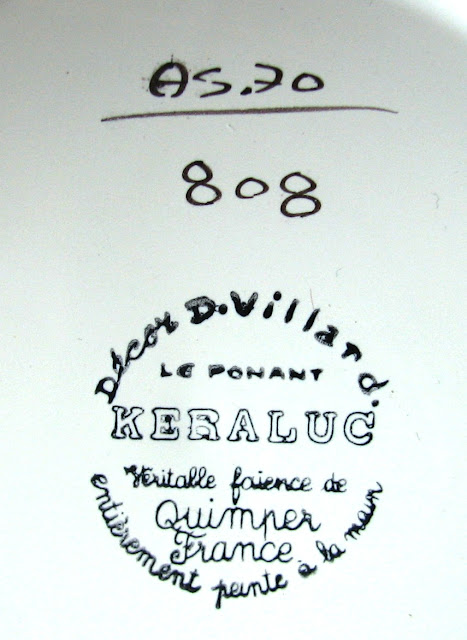 AS.70
808
Décor D. Villard.
LE PONANT
KERALUC
Véritable faïence de
Quimper
France
entièrement peinte à la main